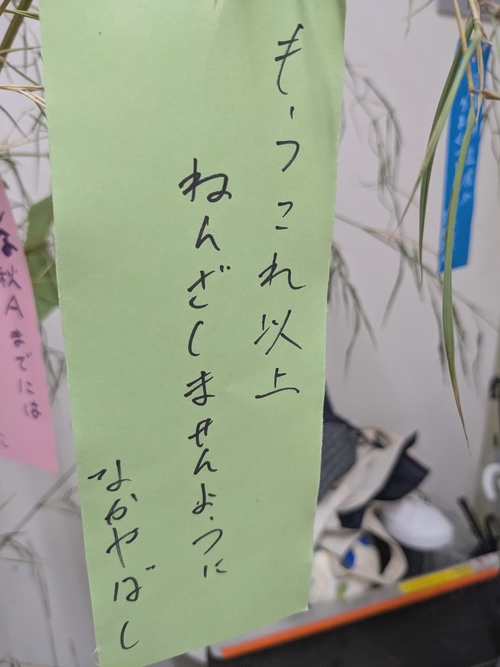 もうこれ以上
ねんざしませんように
なかやばし
秋Aまでには